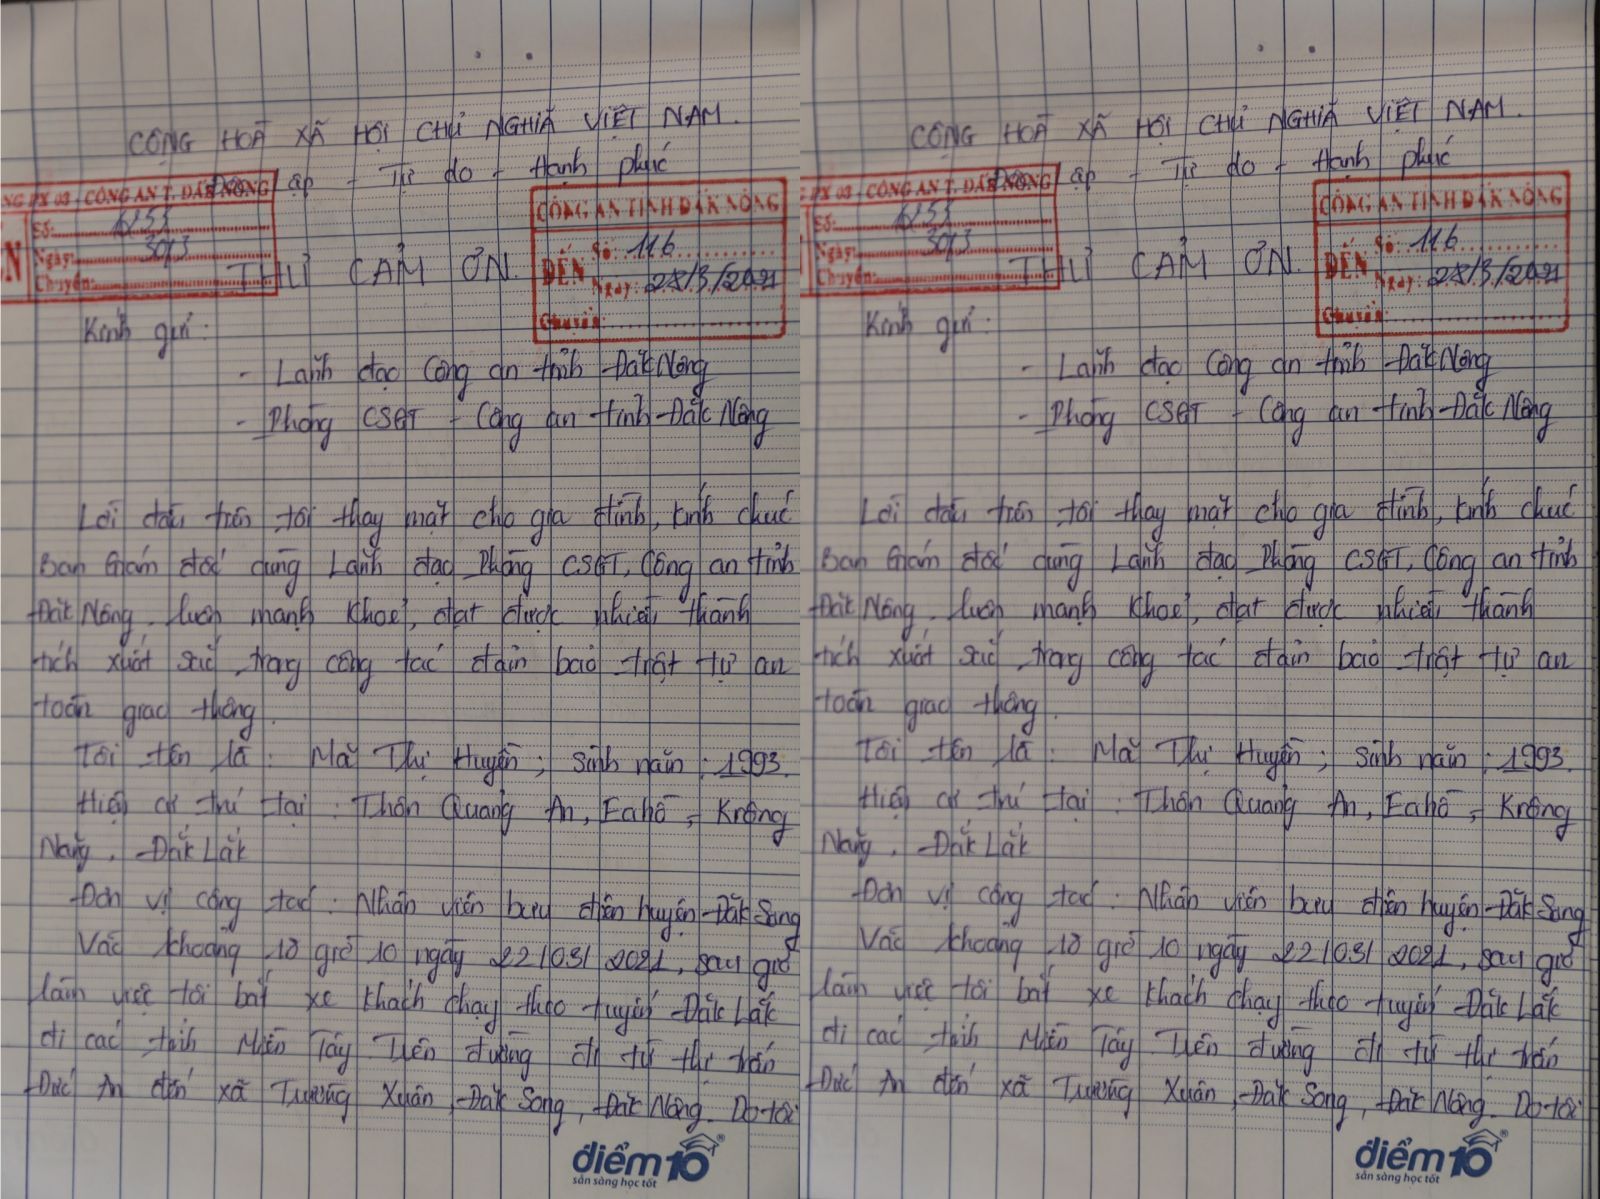 CỘNG HOÀ XÃ HỘI CHỦ NGHĨA VIỆT NAM.
Độc lập - Tự do - Hạnh phúc
PX 03 - CÔNG AN T. ĐẮK NÔNG
Số:
Ngày: 30/3
Chuyển:
CÔNG AN TỈNH ĐẮK NÔNG
ĐẾN
Số: 116
Ngày: 28/3/2021
Chuyển:
THƯ CẢM ƠN.
Kính gửi:
- Lãnh đạo Công an tỉnh Đắk Nông
- Phòng CSGT - Công an tỉnh Đắk Nông
Lời đầu tiên tôi thay mặt cho gia đình, kính chúc
Ban Giám đốc cùng Lãnh đạo Phòng CSGT, Công an tỉnh
Đăk Nông. luôn mạnh khoẻ, đạt được nhiều thành
tích xuất sắc trong công tác đảm bảo trật tự an
toàn giao thông.
Tôi tên là: Mã Thị Huyền; sinh năm: 1993.
Hiện cư trú tại: Thôn Quảng An, Eahồ, Krông
Năng. Đắk Lắk
Đơn vị công tác: Nhân viên bưu điện huyện Đăk Song
Vào khoảng 18 giờ 10 ngày 22/03/2021, sau giờ
làm việc tôi bắt xe khách chạy theo tuyến Đăk Lắk
đi các tỉnh Miền Tây. Trên đường đi từ thị trấn
Đức An đến xã Trường Xuân, Đăk Song, Đăk Nông. Do tôi
điểm10®
sẵn sàng học tốt
CỘNG HOÀ XÃ HỘI CHỦ NGHĨA VIỆT NAM.
Độc lập - Tự do - Hạnh phúc
PX 03 - CÔNG AN T. ĐẮK NÔNG
Số:
Ngày: 30/3
Chuyển:
CÔNG AN TỈNH ĐẮK NÔNG
ĐẾN
Số: 116
Ngày: 28/3/2021
Chuyển:
THƯ CẢM ƠN.
Kính gửi:
- Lãnh đạo Công an tỉnh Đắk Nông
- Phòng CSGT - Công an tỉnh Đắk Nông
Lời đầu tiên tôi thay mặt cho gia đình, kính chúc
Ban Giám đốc cùng Lãnh đạo Phòng CSGT, Công an tỉnh
Đăk Nông. luôn mạnh khoẻ, đạt được nhiều thành
tích xuất sắc trong công tác đảm bảo trật tự an
toàn giao thông.
Tôi tên là: Mã Thị Huyền; sinh năm: 1993.
Hiện cư trú tại: Thôn Quảng An, Eahồ, Krông
Năng. Đắk Lắk
Đơn vị công tác: Nhân viên bưu điện huyện Đăk Song
Vào khoảng 18 giờ 10 ngày 22/03/2021, sau giờ
làm việc tôi bắt xe khách chạy theo tuyến Đăk Lắk
đi các tỉnh Miền Tây. Trên đường đi từ thị trấn
Đức An đến xã Trường Xuân, Đăk Song, Đăk Nông. Do tôi
điểm10
sẵn sàng học tốt